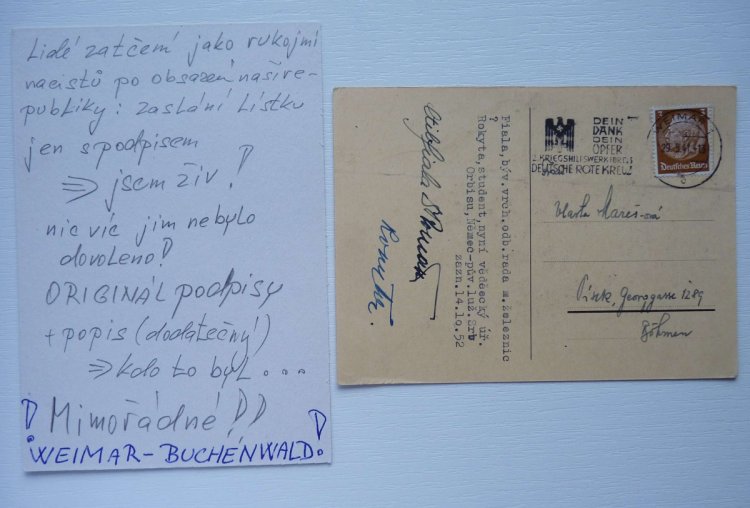 Lidé zatčení jako rukojmí
nacistů po obsazení naší re-
publiky: zaslání lístku
jen s podpisem
⇒ jsem živ!
nic víc jim nebylo
dovoleno!
ORIGINÁL podpisy
+ popis (dodatečný)
⇒ kdo to byl...
! Mimořádné!! !
WEIMAR-BUCHENWALD
Fiala, býv. vrch. odb. rada m. železnic
?
Rokyta, student, nyní vědecký úř.
Orbisu, Němec-pův. luž. Srb
zazn. 14.10.52
Rokyta.
DEIN
DANK
DEIN
OPFER
2. KRIEGSHILFSWERK
DEUTSCHE ROTE KREUZ
WEIMAR 1
c
Deutsches Reich
Vlasta Mareš-ová
Písek, Georggasse 1289
Böhmen